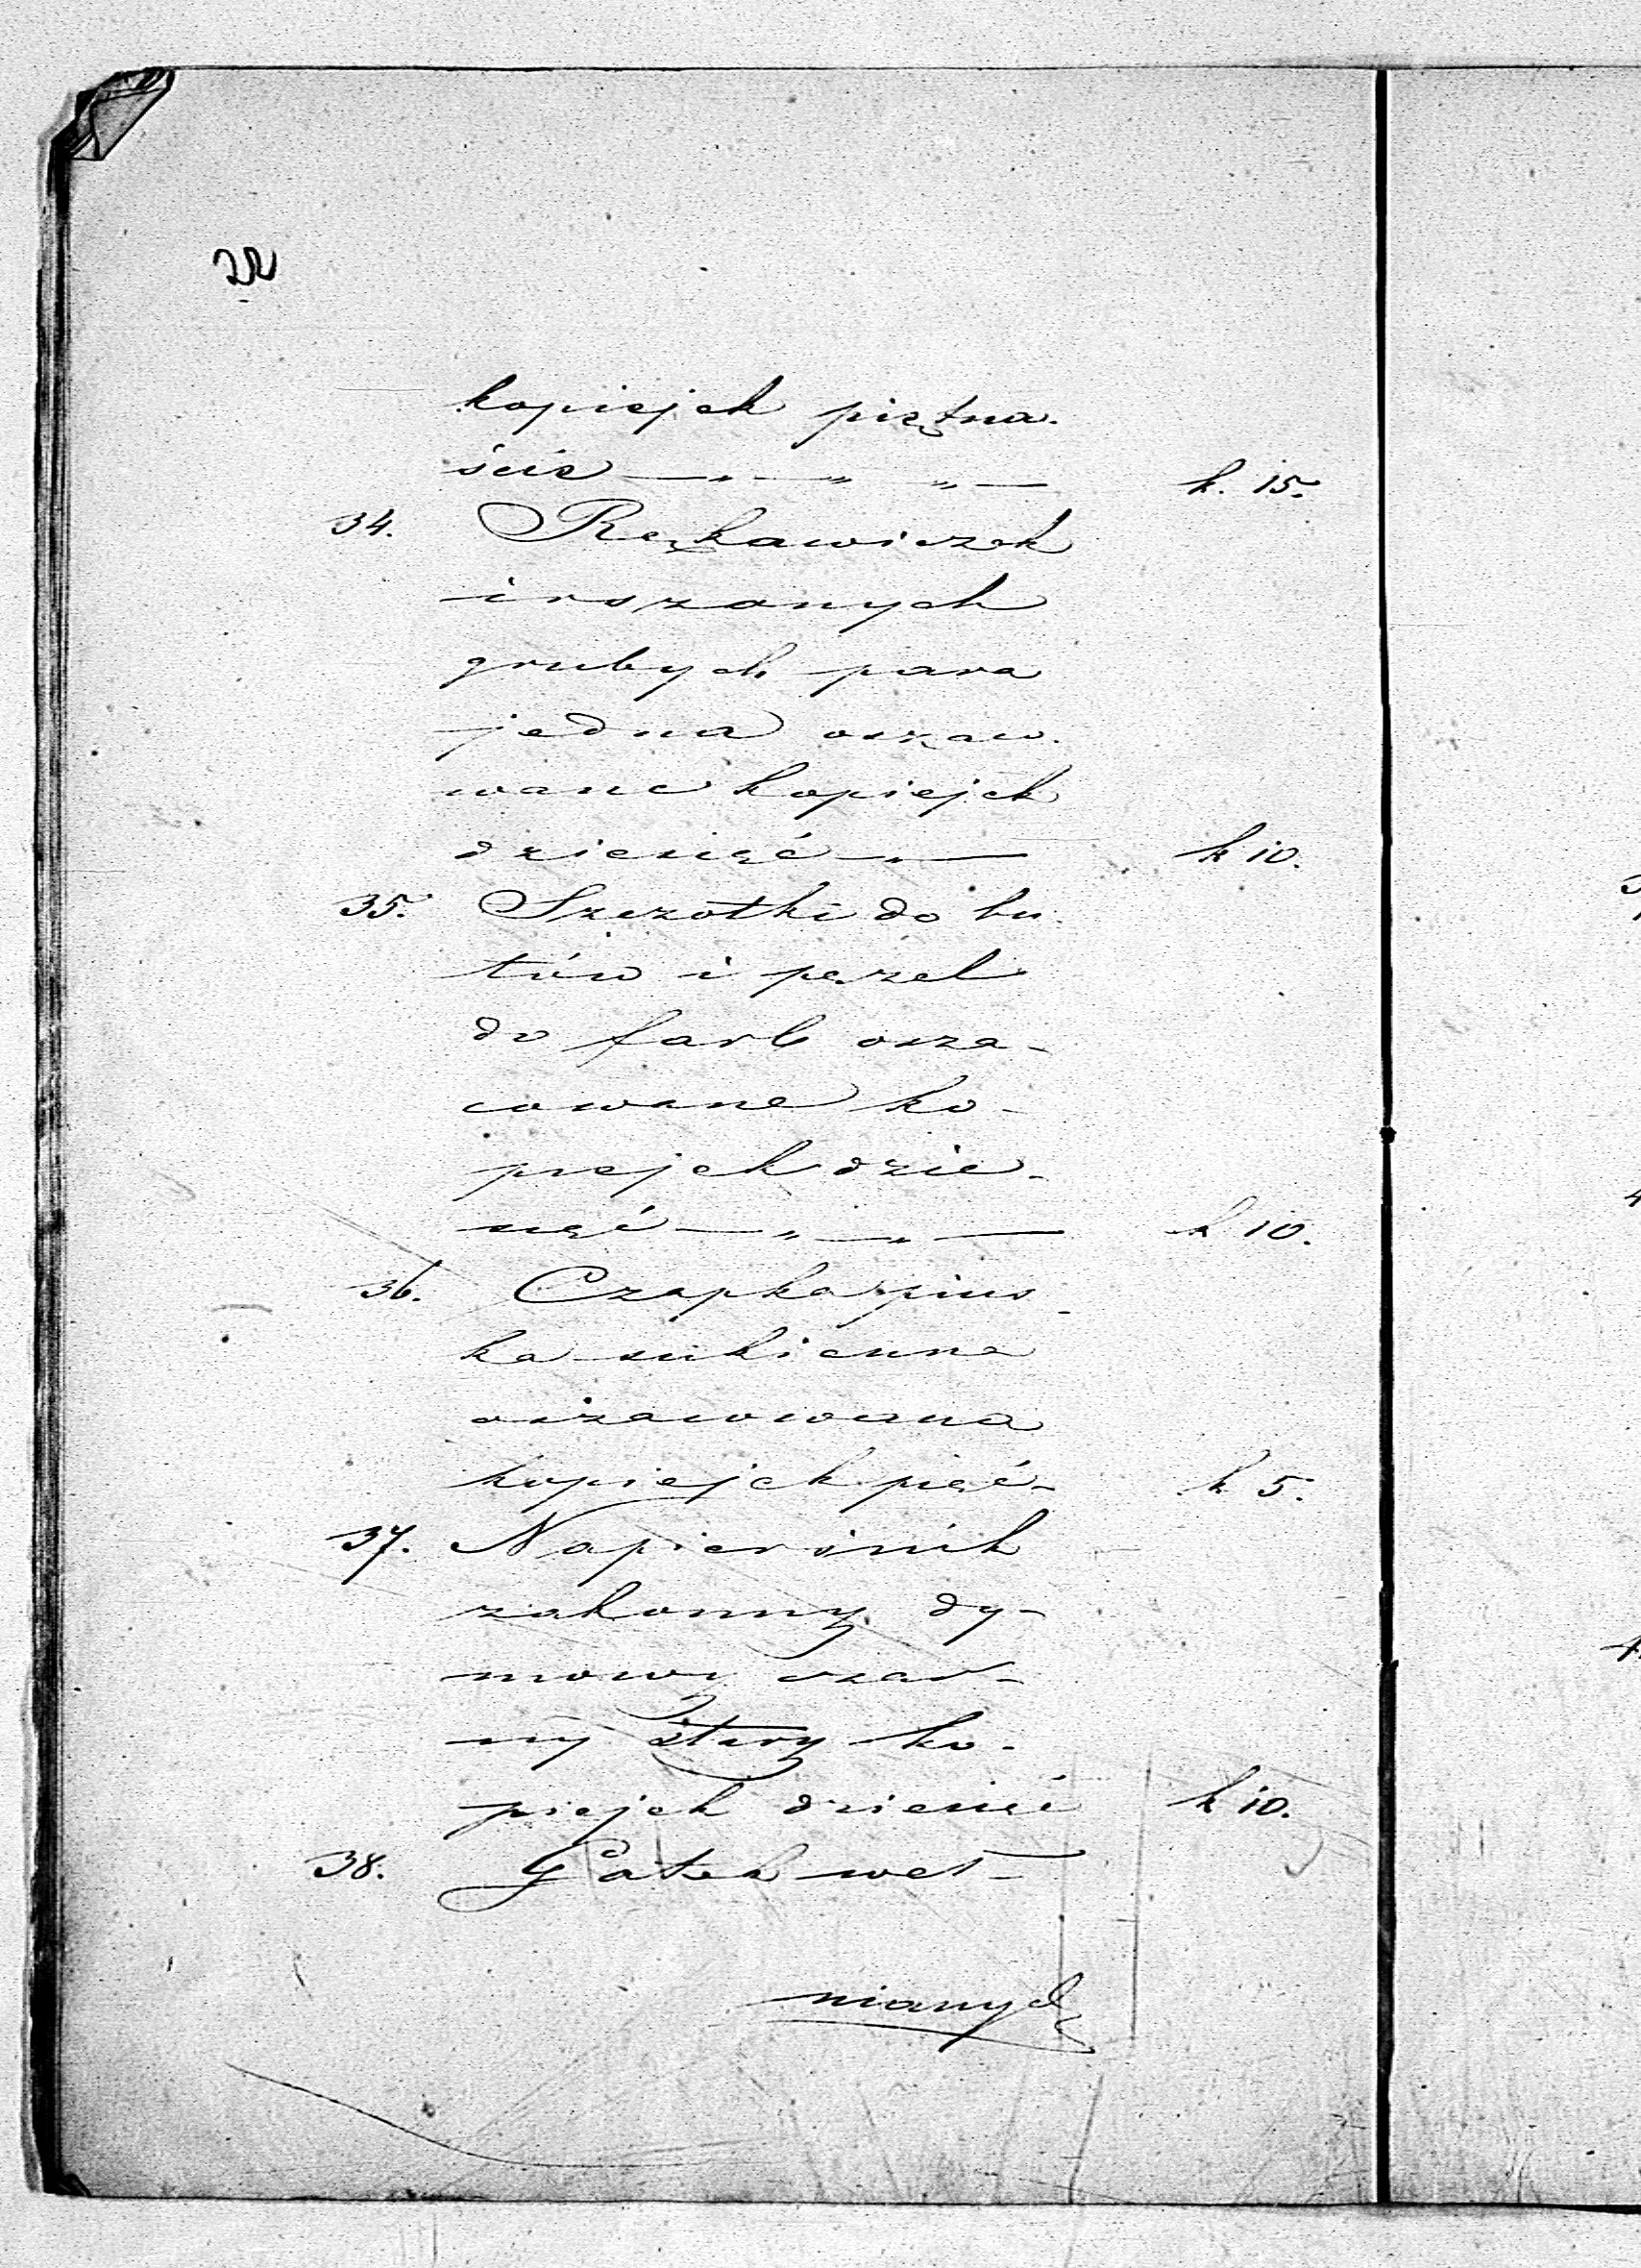 22
kopiejek piętna-
ście — „ — „ „ — k. 15.
34. Rękawiczek
irszanych
grubych para
jedna oszaco-
wane kopiejek
dziesięć — „ — k 10.
35. Szczotki do bu-
tów i pęzel
do farb osza-
cowane ko-
piejek dzie-
sięć — „ — „ — k 10.
36. Czapka pius-
ka sukienna
oszacowana
kopiejek pięć - k 5.
37. Napierśnik
zakonny dy-
mowy czar-
ny stary ko-
piejek dziesięć k 10.
38. Gatek weł-
nianych